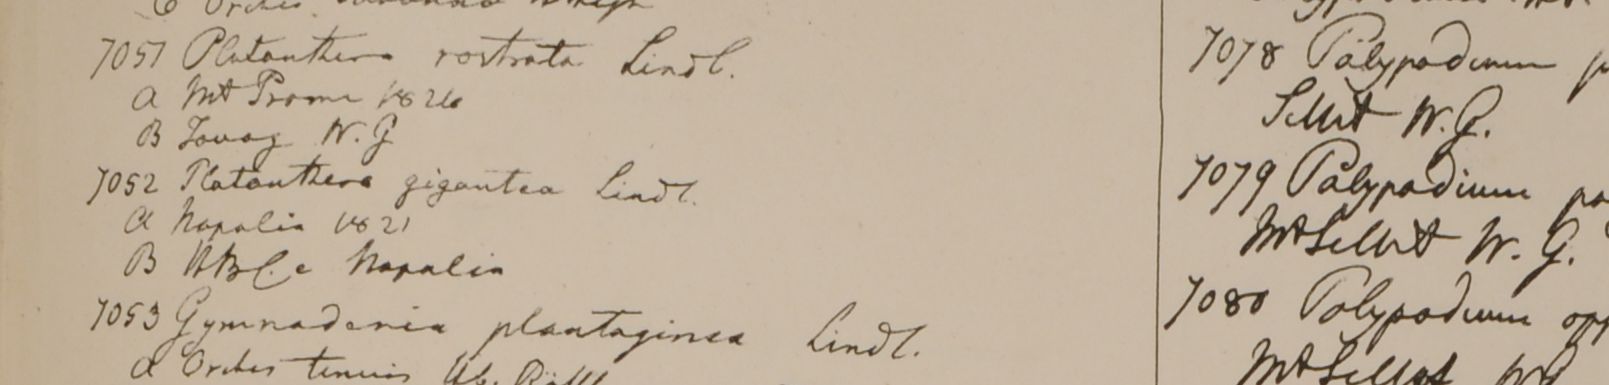 B Orchis
7051 Platanthera rostrata Lindl.
a Mt Prome 1826
B Tavoy W. G
7052 Platanthera gigantea Lindl.
a Napalia 1821
B HBC. e Napalia
7053 Gymnadenia plantaginea Lindl.
a Orchis tenuis
7078 Polypodium
Sillet W. G.
7079 Polypodium
Mt Sillet W. G.
7080 Polypodium opp
Mt Sillet